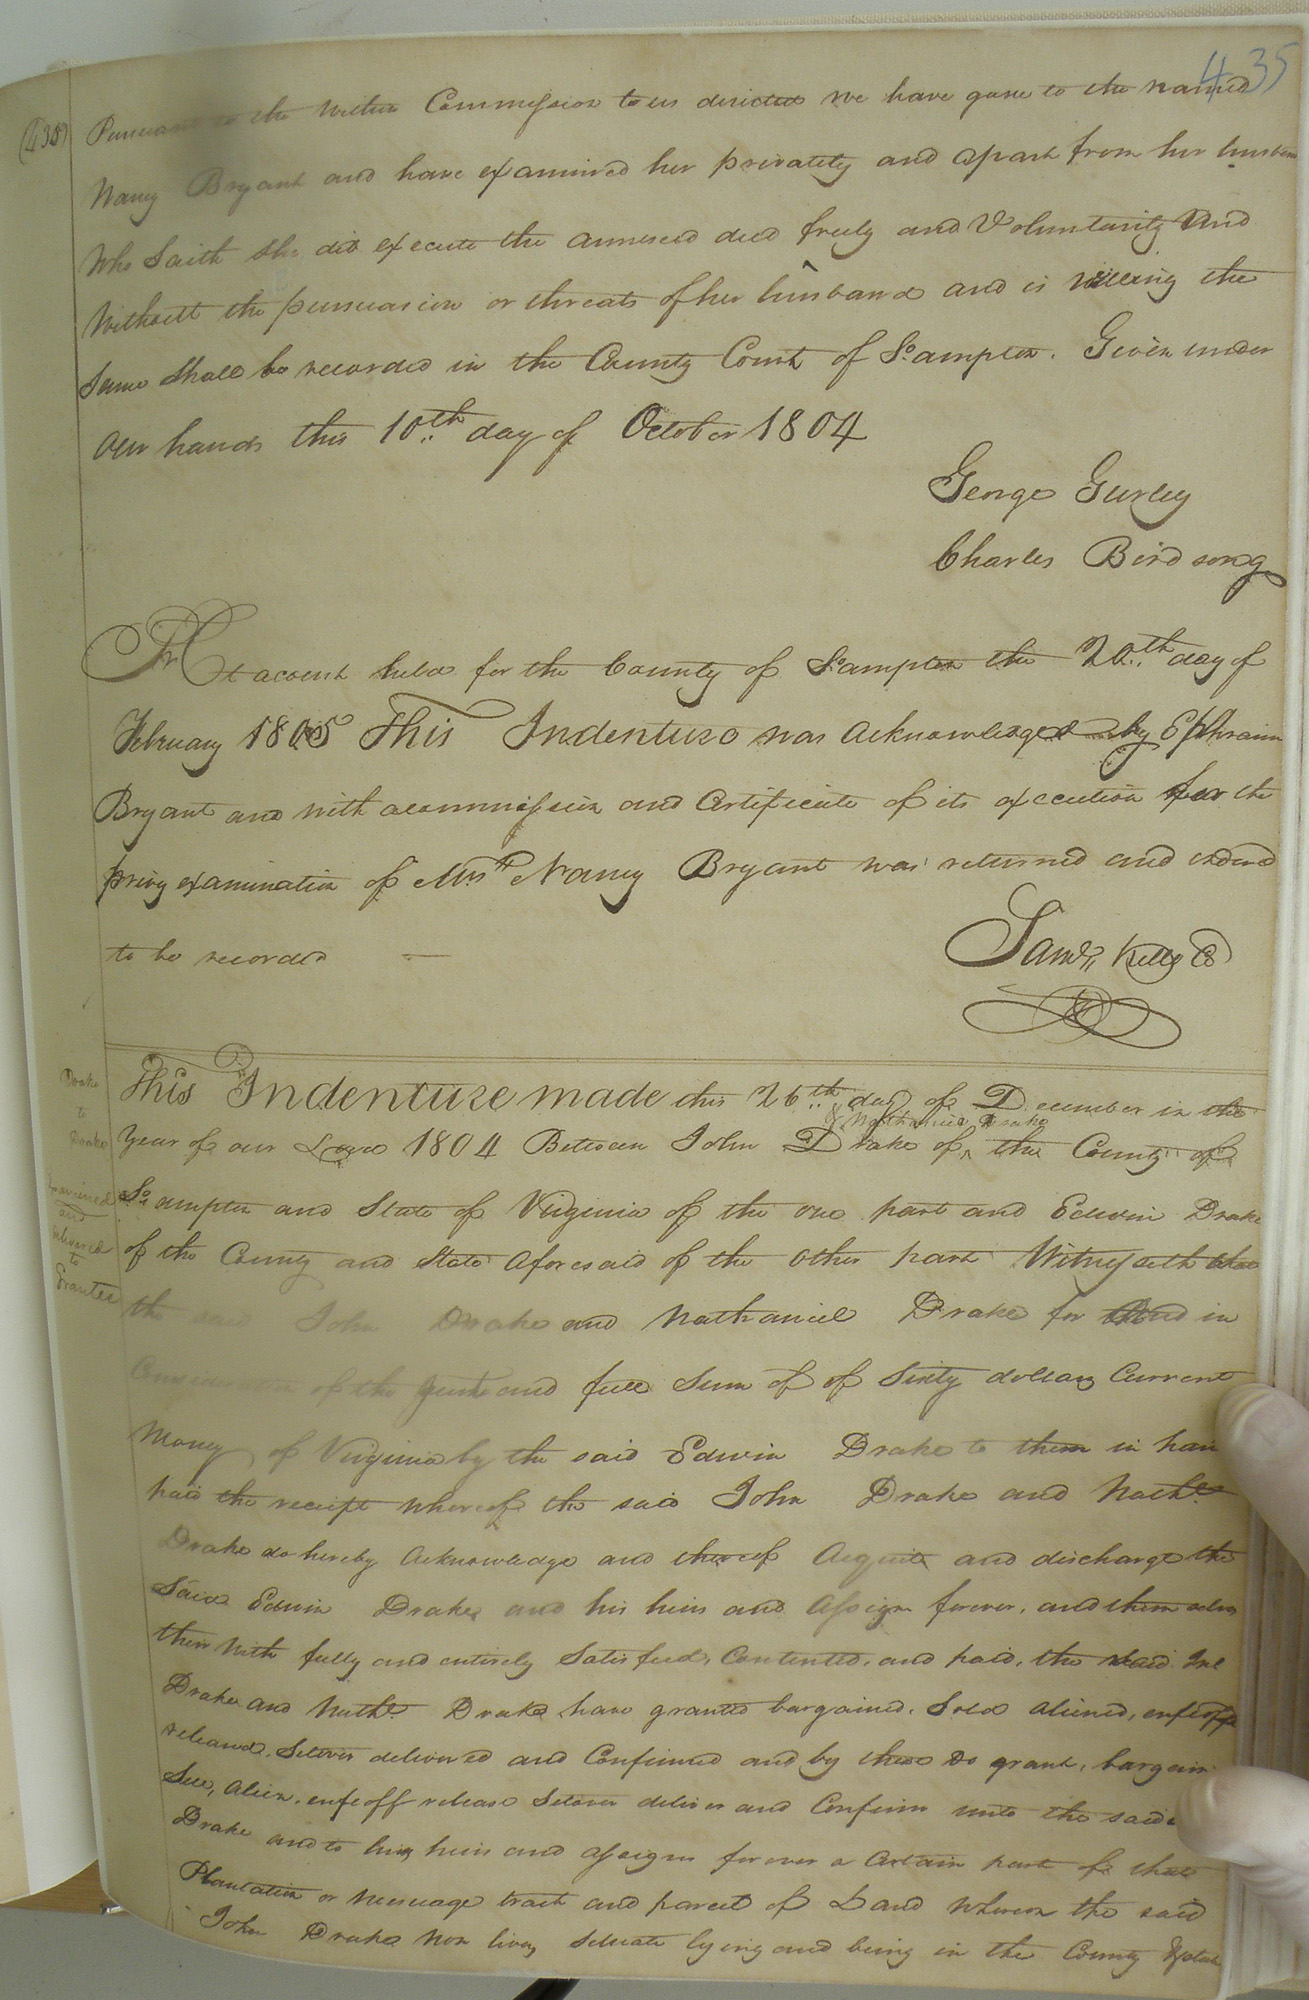 435
(438)
Pursuant to the within Commission to us directed we have gone to the named
Nancy Bryant and have examined her privately and apart from her husban
Who Saith she did execute the annexed deed freely and Voluntarily And
Without the pursuasion or threats of her husband and is willing the
Same Shall be recorded in the County Court of So.ampton. Given under
our hands this 10th day of October 1804
George Gurley
Charles Birdsong
At acourt held for the County of So.ampton the 20th day of
February 1805 This Indenture was Acknowledged by Ephraim
Bryant and with acommission and Certificate of its execution for the
privy examination of Mrs Nancy Bryant was returned and ordered
to be recorded —
Saml. Kello CC
Drake
to
Drake
Examined
and
delivered
to
Grantee
This Indenture made this 26th day of December in the
& Nathaniel Drake
Year of our Lord 1804 Between John Drake of ^ the County of
So.ampton and State of Virginia of the one part and Edwin Drake
of the County and State Aforesaid of the other part Witnesseth that
the said John Drake and Nathaniel Drake for And in
Consideration of the just and full Sum of of Sixty dollars Current
Money of Virginia by the said Edwin Drake to them in han
paid the receipt whereof the said John Drake and Nathl.
Drake do hereby Acknowledge and thereof Acquit and discharge the
Said Edwin Drake and his heirs and Assigns forever, and them selves
therewith fully and entirely Satisfied, Contented, and paid, the said Jno
Drake and Nathl. Drake have granted bargained, Sold Aliened, enfeoff
released, Setover delivered and Confirmed and by these do grant, bargain
Sell, Alien, enfeoff release Setover deliver and Confirm unto the said
Drake and to his heirs and assigns forever a Certain part of that
Plantation or Messuage tract and parcel of Land whereon the said
John Drake now lives Situate lying and being in the County